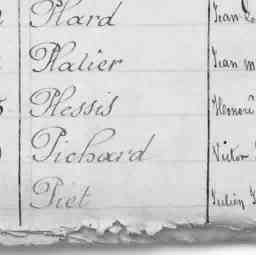 Plard Jean
Plalier Jean
Plessis Eléonore
Pichard Victor
Piet Julien